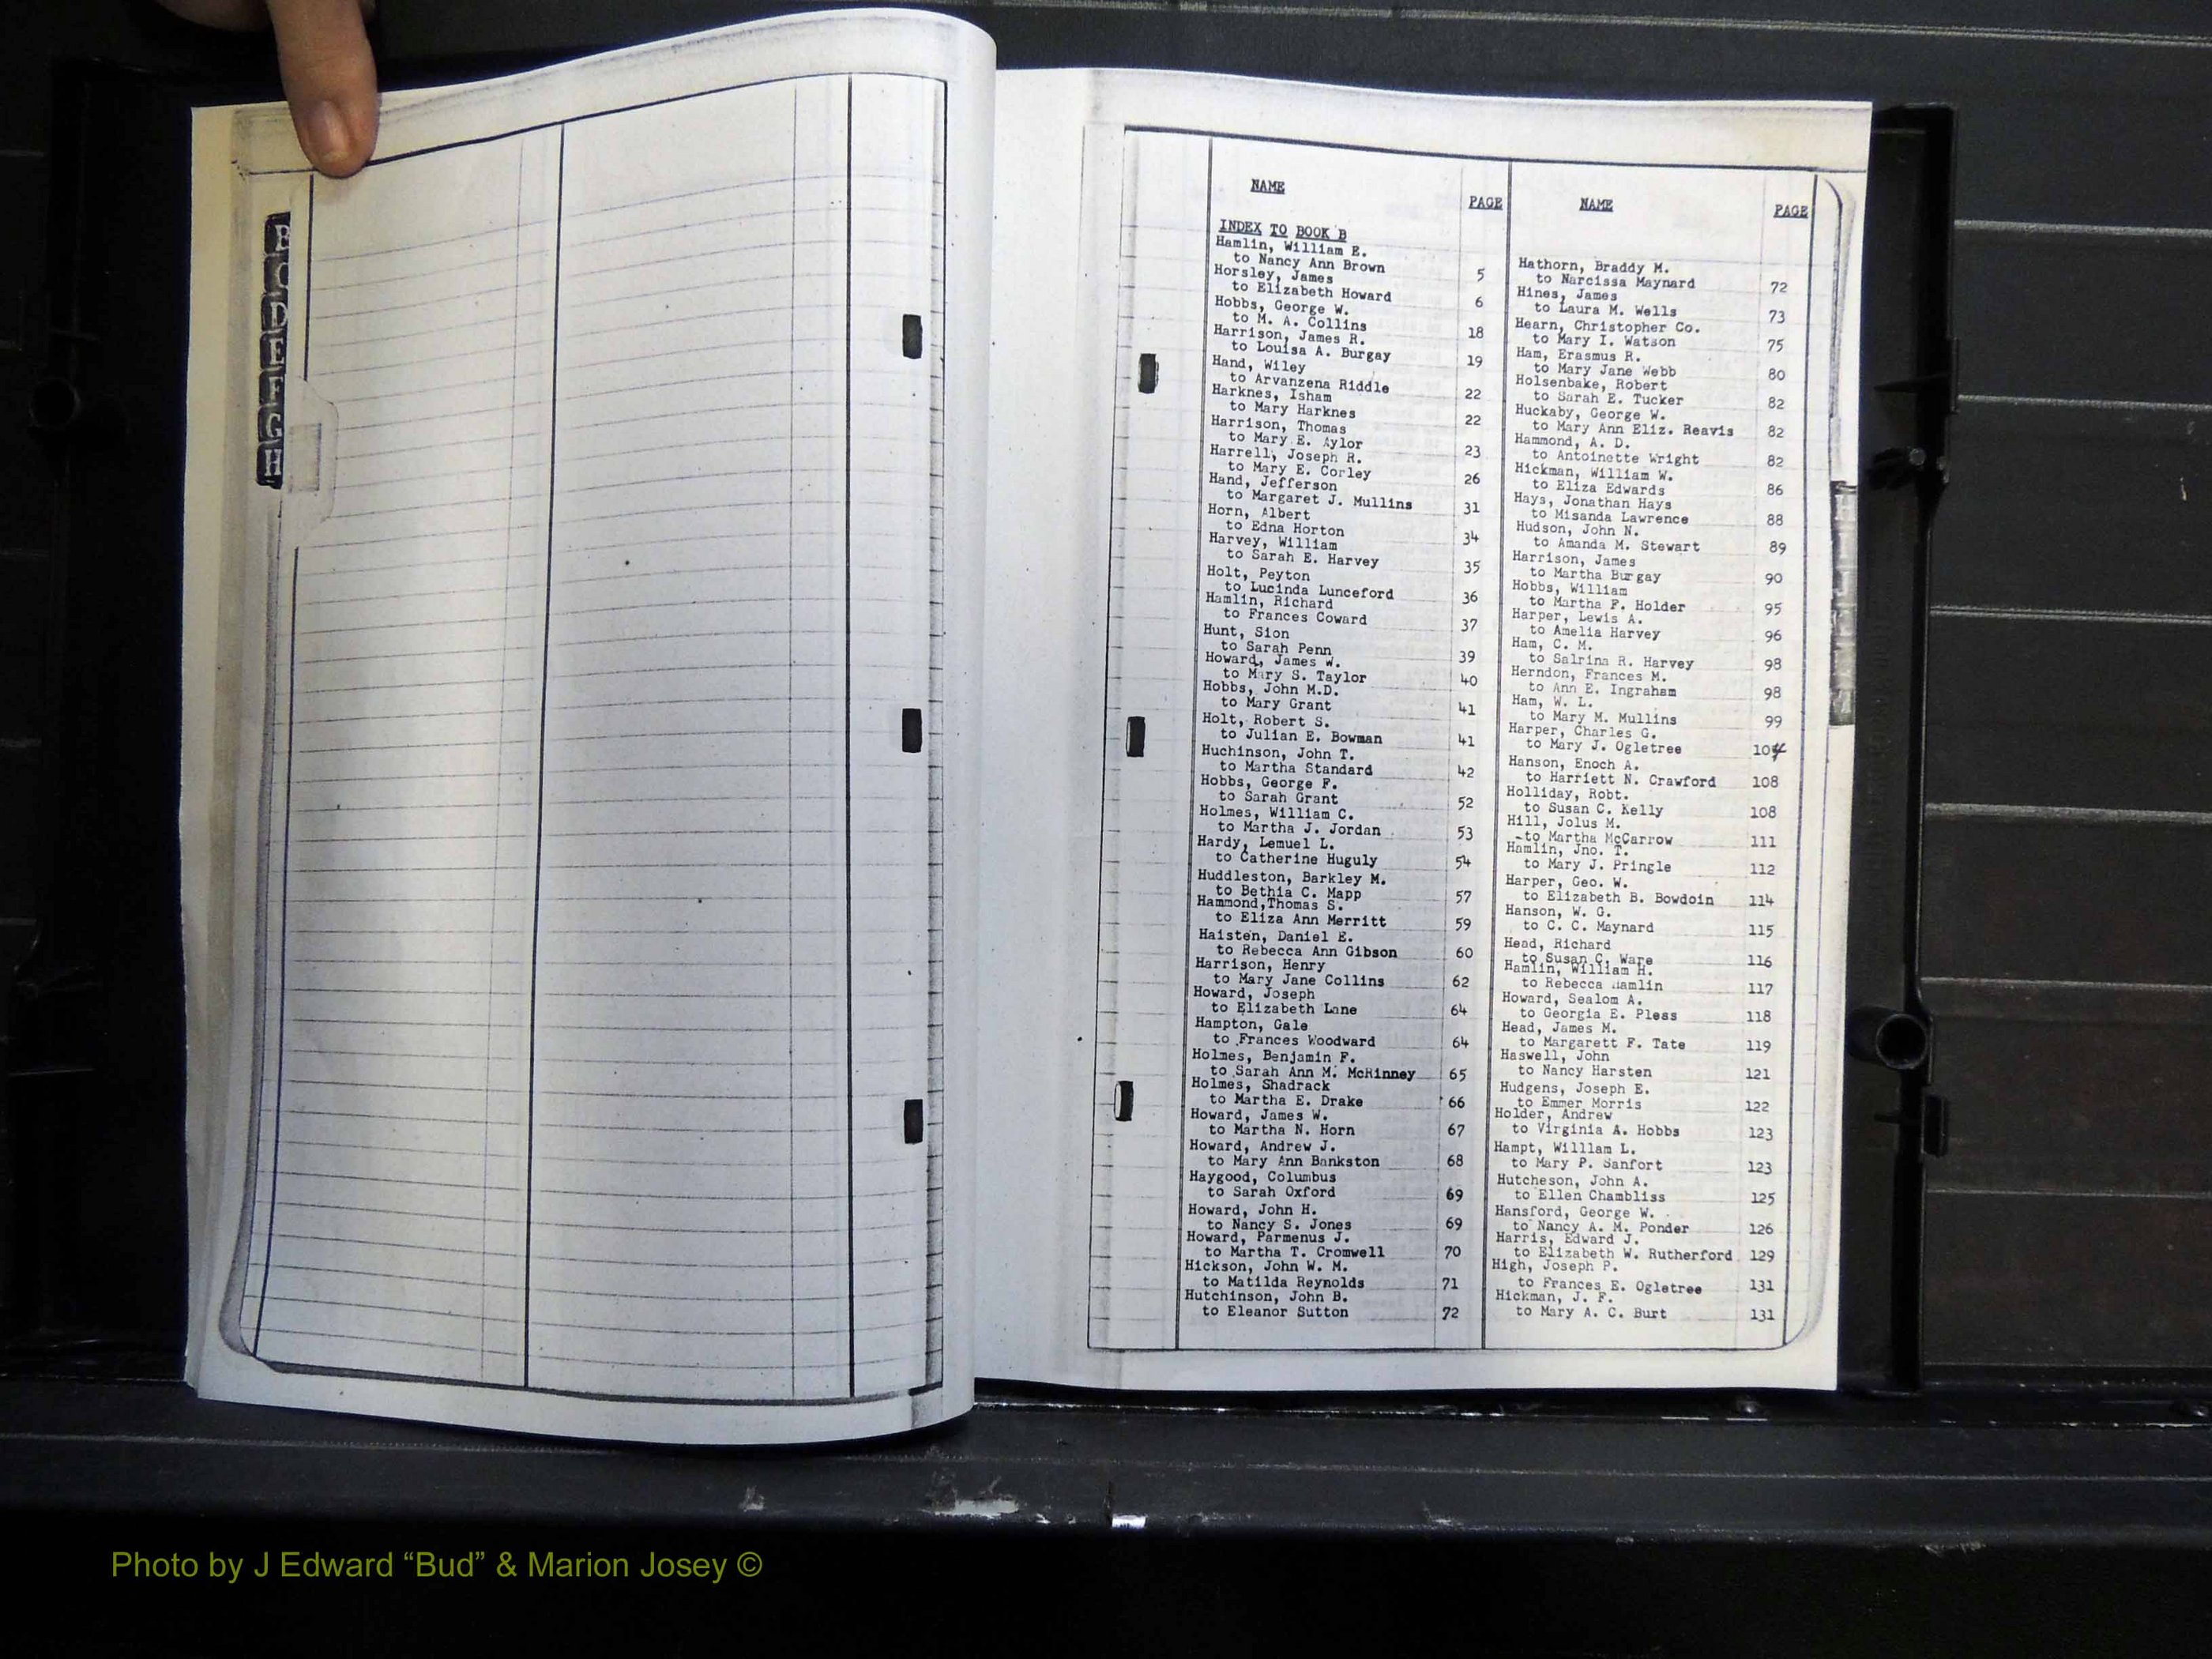 B
C
D
E
F
G
H
NAME
PAGE
INDEX TO BOOK B
Hamlin, William E.
to Nancy Ann Brown 5
Horsley, James
to Elizabeth Howard 6
Hobbs, George W.
to M. A. Collins 18
Harrison, James R.
to Louisa A. Burgay 19
Hand, Wiley
to Arvanzena Riddle 22
Harknes, Isham
to Mary Harknes 22
Harrison, Thomas
to Mary E. Aylor 23
Harrell, Joseph R.
to Mary E. Corley 26
Hand, Jefferson
to Margaret J. Mullins 31
Horn, Albert
to Edna Horton 34
Harvey, William
to Sarah E. Harvey 35
Holt, Peyton
to Lucinda Lunceford 36
Hamlin, Richard
to Frances Coward 37
Hunt, Sion
to Sarah Penn 39
Howard, James W.
to Mary S. Taylor 40
Hobbs, John M.D.
to Mary Grant 41
Holt, Robert S.
to Julian E. Bowman 41
Huchinson, John T.
to Martha Standard 42
Hobbs, George F.
to Sarah Grant 52
Holmes, William C.
to Martha J. Jordan 53
Hardy, Lemuel L.
to Catherine Huguly 54
Huddleston, Barkley M.
to Bethia C. Mapp 57
Hammond,Thomas S.
to Eliza Ann Merritt 59
Haisten, Daniel E.
to Rebecca Ann Gibson 60
Harrison, Henry
to Mary Jane Collins 62
Howard, Joseph
to Elizabeth Lane 64
Hampton, Gale
to Frances Woodward 64
Holmes, Benjamin F.
to Sarah Ann M. McKinney 65
Holmes, Shadrack
to Martha E. Drake 66
Howard, James W.
to Martha N. Horn 67
Howard, Andrew J.
to Mary Ann Bankston 68
Haygood, Columbus
to Sarah Oxford 69
Howard, John H.
to Nancy S. Jones 69
Howard, Parmenus J.
to Martha T. Cromwell 70
Hickson, John W. M.
to Matilda Reynolds 71
Hutchinson, John B.
to Eleanor Sutton 72
NAME
PAGE
Hathorn, Braddy M.
to Narcissa Maynard 72
Hines, James
to Laura M. Wells 73
Hearn, Christopher Co.
to Mary I. Watson 75
Ham, Erasmus R.
to Mary Jane Webb 80
Holsenbake, Robert
to Sarah E. Tucker 82
Huckaby, George W.
to Mary Ann Eliz. Reavis 82
Hammond, A. D.
to Antoinette Wright 82
Hickman, William W.
to Eliza Edwards 86
Hays, Jonathan Hays
to Misanda Lawrence 88
Hudson, John N.
to Amanda M. Stewart 89
Harrison, James
to Martha Burgay 90
Hobbs, William
to Martha F. Holder 95
Harper, Lewis A.
to Amelia Harvey 96
Ham, C. M.
to Salrina R. Harvey 98
Herndon, Frances M.
to Ann E. Ingraham 98
Ham, W. L.
to Mary M. Mullins 99
Harper, Charles G.
to Mary J. Ogletree 104
Hanson, Enoch A.
to Harriett N. Crawford 108
Holliday, Robt.
to Susan C. Kelly 108
Hill, Jolus M.
to Martha McCarrow 111
Hamlin, Jno. T.
to Mary J. Pringle 112
Harper, Geo. W.
to Elizabeth B. Bowdoin 114
Hanson, W. G.
to C. C. Maynard 115
Head, Richard
to Susan C. Ware 116
Hamlin, William H.
to Rebecca Hamlin 117
Howard, Sealom A.
to Georgia E. Pless 118
Head, James M.
to Margarett F. Tate 119
Haswell, John
to Nancy Harsten 121
Hudgens, Joseph E.
to Emmer Morris 122
Holder, Andrew
to Virginia A. Hobbs 123
Hampt, William L.
to Mary P. Sanfort 123
Hutcheson, John A.
to Ellen Chambliss 125
Hansford, George W.
to Nancy A. M. Ponder 126
Harris, Edward J.
to Elizabeth W. Rutherford 129
High, Joseph P.
to Frances E. Ogletree 131
Hickman, J. F.
to Mary A. C. Burt 131
Photo by J Edward “Bud” & Marion Josey ©